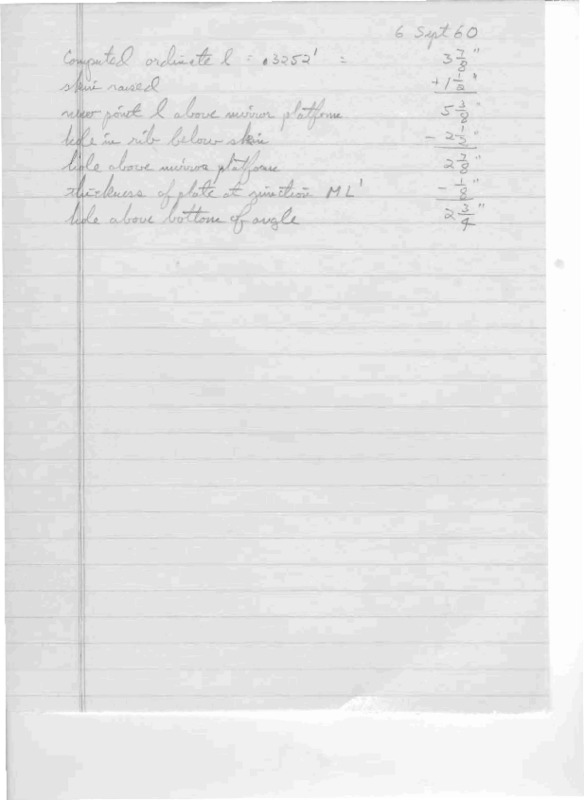 6 Sept 60
Computed ordinate l = .3252' = 3 7/8"
skin raised + 1 1/2"
new point l above mirror platform 5 3/8"
hole in rib below skin - 2 1/2"
hole above mirror platform 2 7/8"
thickness of plate at junction ML' - 1/8"
hole above bottom of angle 2 3/4"